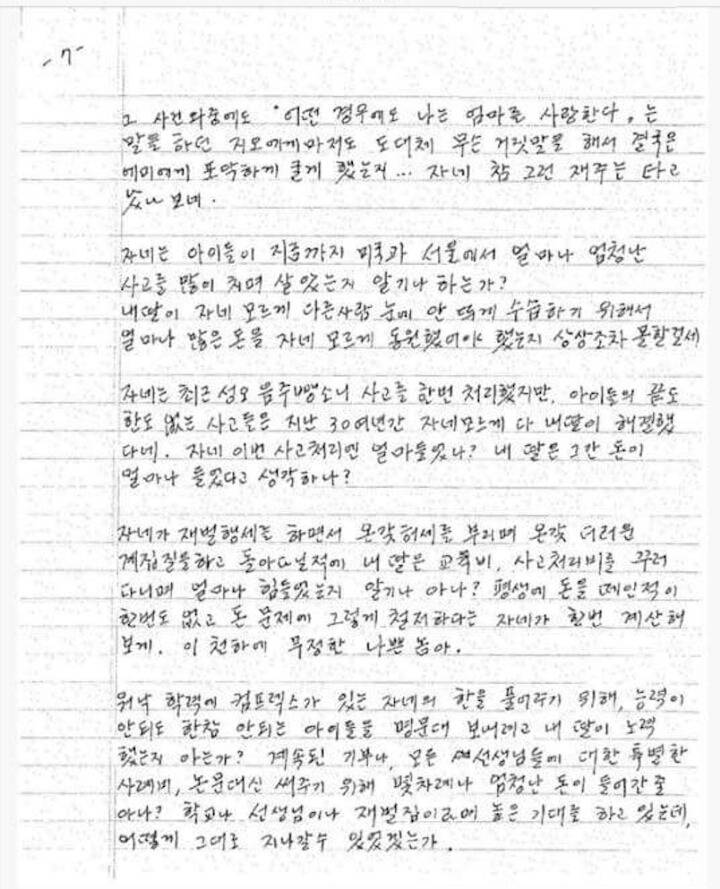 -7-
그 사건 와중에도 "어떤 경우에도 나는 엄마를 사랑한다"는
말을 하던 지오에게마저도 도대체 무슨 거짓말을 해서 결국은
에미에게 포악하게 굴게 했는지... 자네 참 그런 재주는 타고
났나 보네.
자네는 아이들이 지금까지 미국과 서울에서 얼마나 엄청난
사고를 많이 치며 살았는지 알기나 하는가?
내딸이 자네 모르게 다른사람 눈에 안 띄게 수습하기 위해서
얼마나 많은 돈을 자네 모르게 동원했어야 했는지 상상조차 못할걸세
자네는 최근 성오 음주뺑소니 사고를 한번 처리했지만, 아이들의 끝도
한도 없는 사고들은 지난 30여년간 자네모르게 다 내딸이 해결했
다네. 자네 이번 사고처리엔 얼마들었나? 내 딸은 그간 돈이
얼마나 들었다고 생각하나?
자네가 재벌행세를 하면서 온갖허세를 부리며 온갖 더러운
계집질을하고 돌아다닐적에 내 딸은 교육비, 사고처리비를 꾸러
다니며 얼마나 힘들었는지 알기나 아나? 평생에 돈을 떼인적이
한번도 없고 돈 문제에 그렇게 철저하다는 자네가 한번 계산해
보게. 이 천하에 무정한 나쁜 놈아.
워낙 학력에 컴프렉스가 있는 자네의 한을 풀어주기 위해, 능력이
안되도 한참 안되는 아이들을 명문대 보내려고 내 딸이 노력
했는지 아는가? 계속된 기부나, 모든 선생님들에 대한 특별한
사례비, 논문대신 써주기 위해 몇차례나 엄청난 돈이 들어간줄
아나? 학교나 선생님이나 재벌집이라며 높은 기대를 하고 있는데,
어떻게 그대로 지나갈수 있었겠는가.